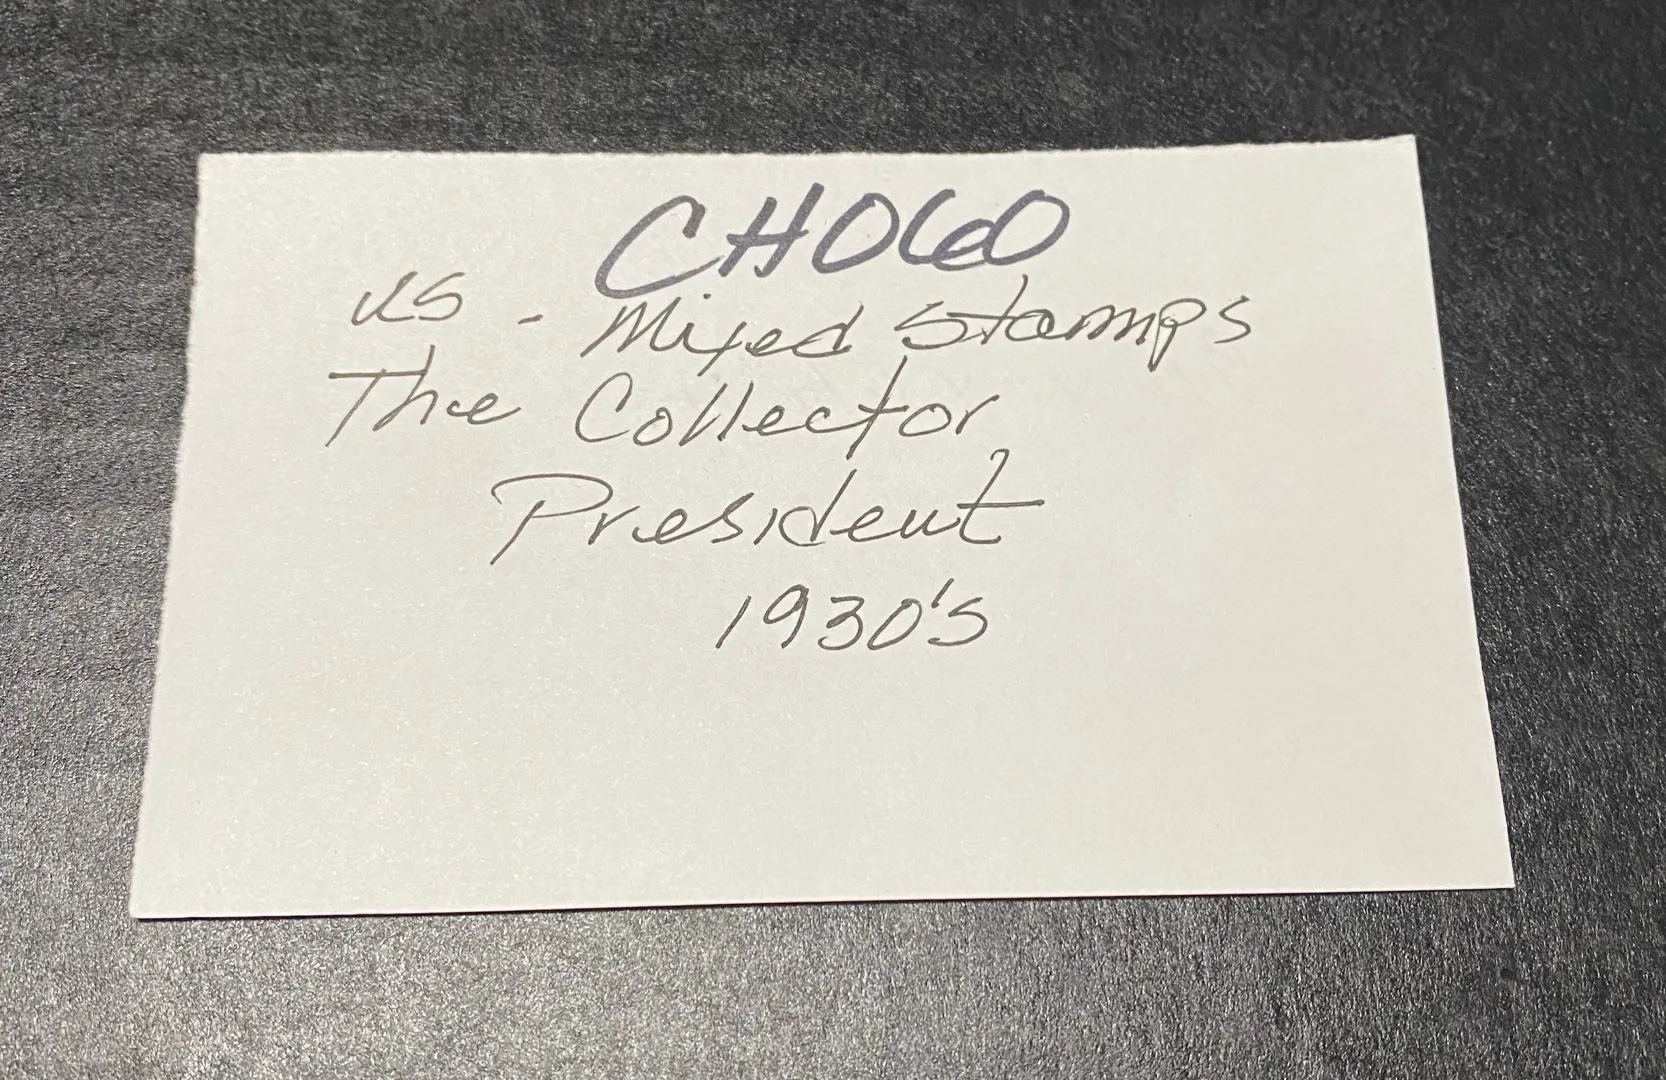 CH060
US - Mixed Stamps
The Collector
President
1930's